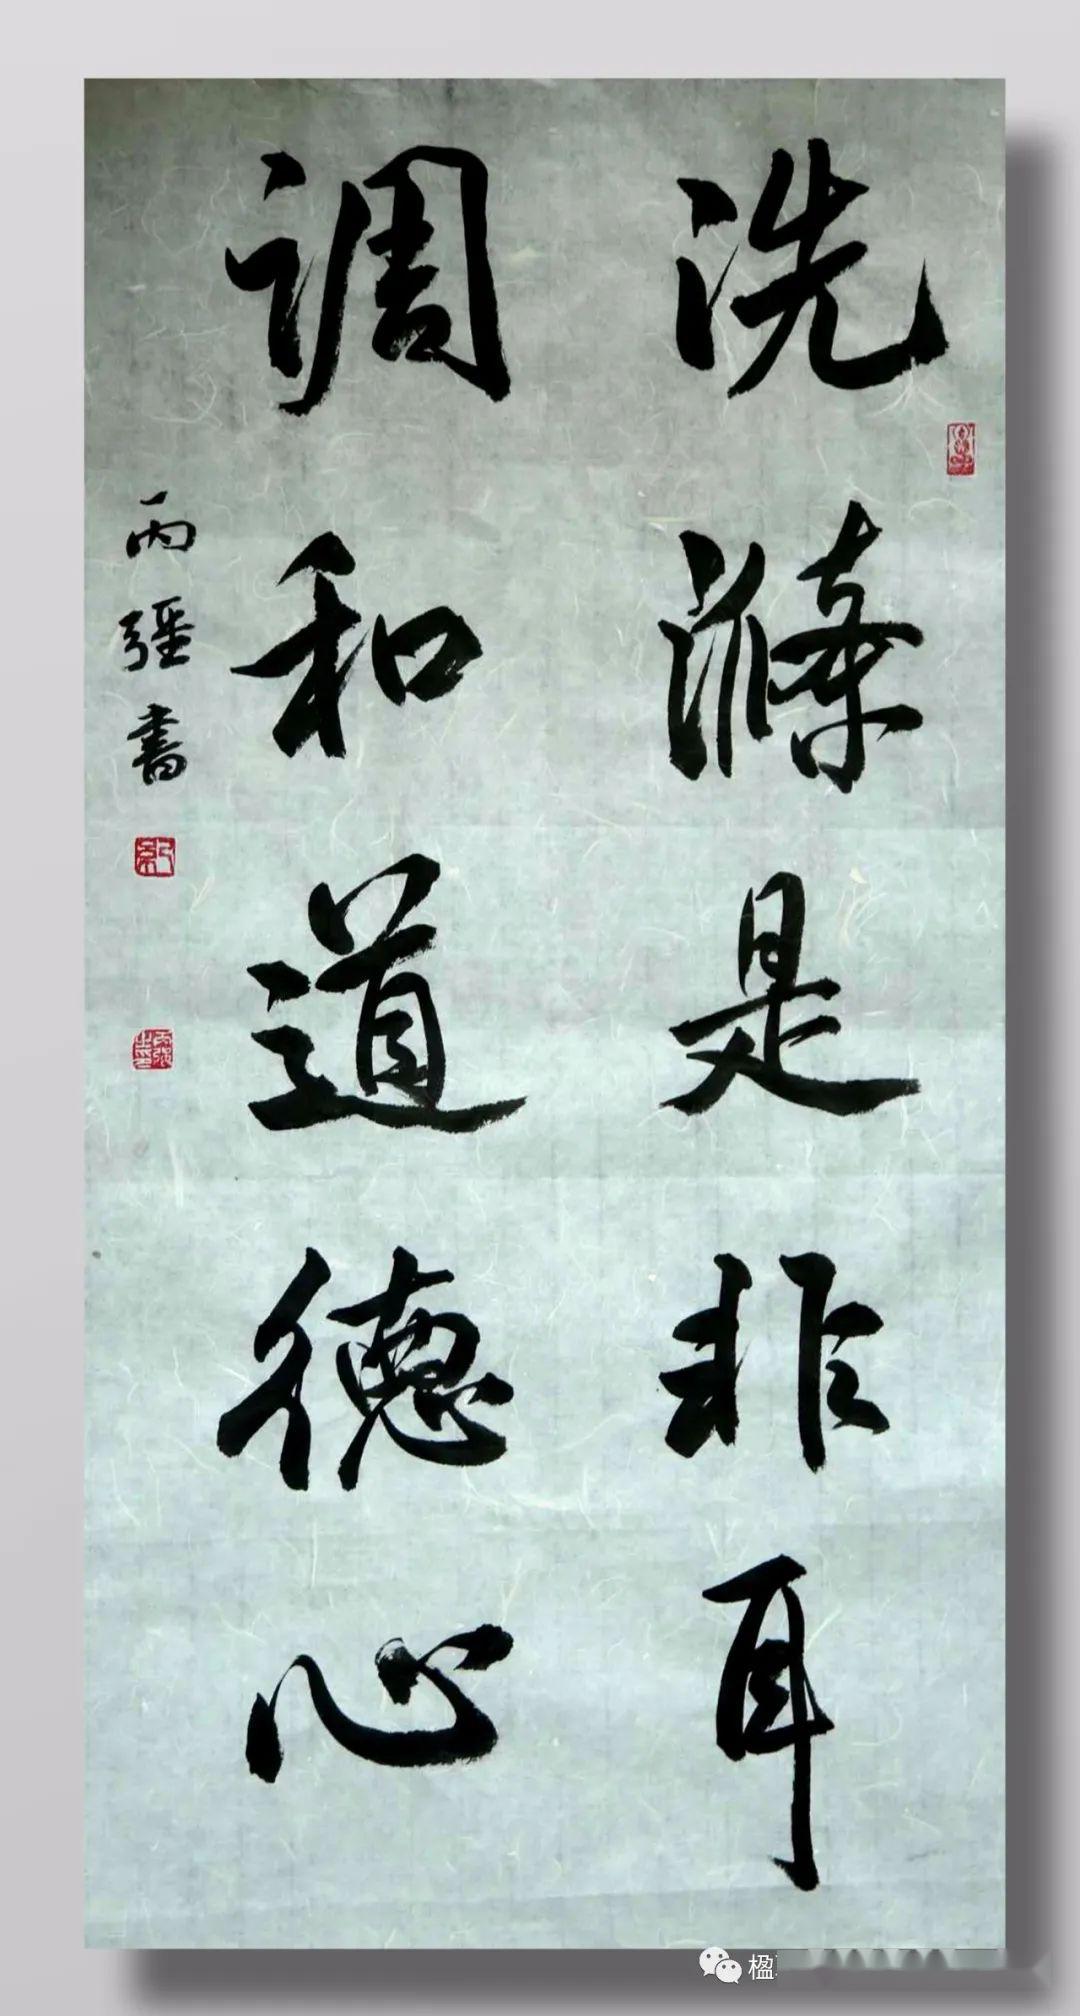 洗滌是非耳
调和道德心
丙彊書
楹